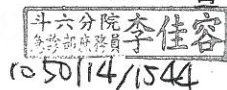 斗六分院
急診部庶務員 李佳容
1050114/1544